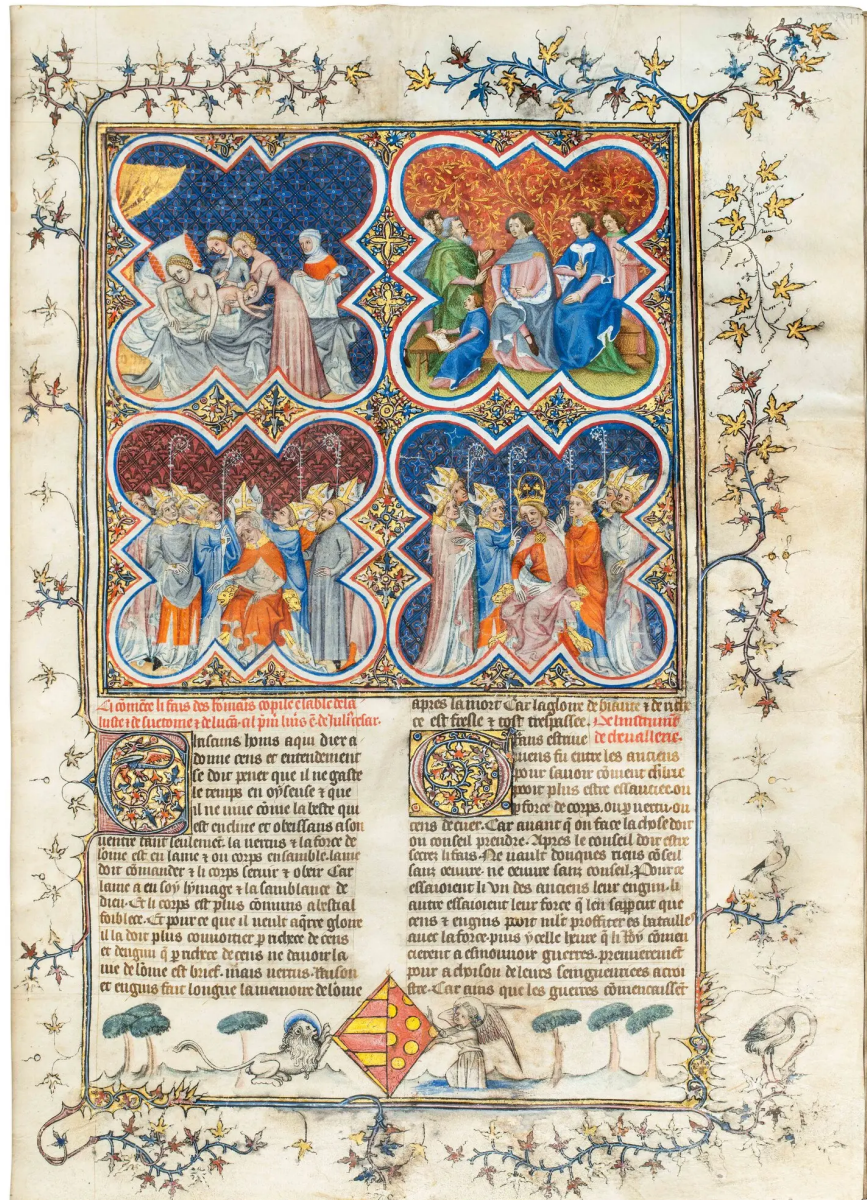 Ci cōmēce li fais des Romais cōpile ēsable de la
luste ⁊ de suetoine ⁊ de lucā. al p̄m liurs ē. de Jul cesar.
Chascuns hōms a qui dier a
donne cens et entendement
se doit pener que il ne gaste
le temps en oyseuse ⁊ que
il ne viue cōme la beste qui
est encline et obeissans a son
ventre tant seulemēt. la vertus ⁊ la force de
lōme est en lame ⁊ ou corps ensamble. lame
doit cōmander ⁊ li corps seruir ⁊ obeir Car
lame a en soy lymage ⁊ la samblance de
dieu. Et li corps est plus cōmuns a bestial
foiblece. Et pour ce que il vieult aq̄rre glore
il la doit plus couuoitier p̱ richece de cens
et dengin q̄ p̱ richece de cens ne dauoir la
vie de lōme est brief. mais vertus. Raison
et enguis fait longue la memoire de lōme
apres la mort Car la glore de biaute ⁊ de rich
ce est fresle ⁊ tost trespassee. De linstrumēt
de cheuallerie.
Grans estriue
quens fu entre les anciens
pour sauoir cōment chiure
pooit plus estre essauciee. ou
p̱ force de corps. ou p̱ vertu. ou
cens de cuer. Car auant q̄ on face la chose doit
on conseil prendre. Apres le conseil doit estre
secrez li fais. Ne vault donques riens cōseil
sanz oeuure. ne oeuure sanz conseil. Pour ce
essaioient li vn des anciens leur engin. li
autre essaioient leur force q̄ len sapp̱ceut que
cens ⁊ enguis pooit mlt̄ proffiter es bataille
auec la force. puis ycelle heure q̄ li Roy cōmen
cierent a esmouuoir guerres. premieremēt
pour achoison de leurs seingneuries acroi
stre. Car ains que les guerres cōmencaissēt